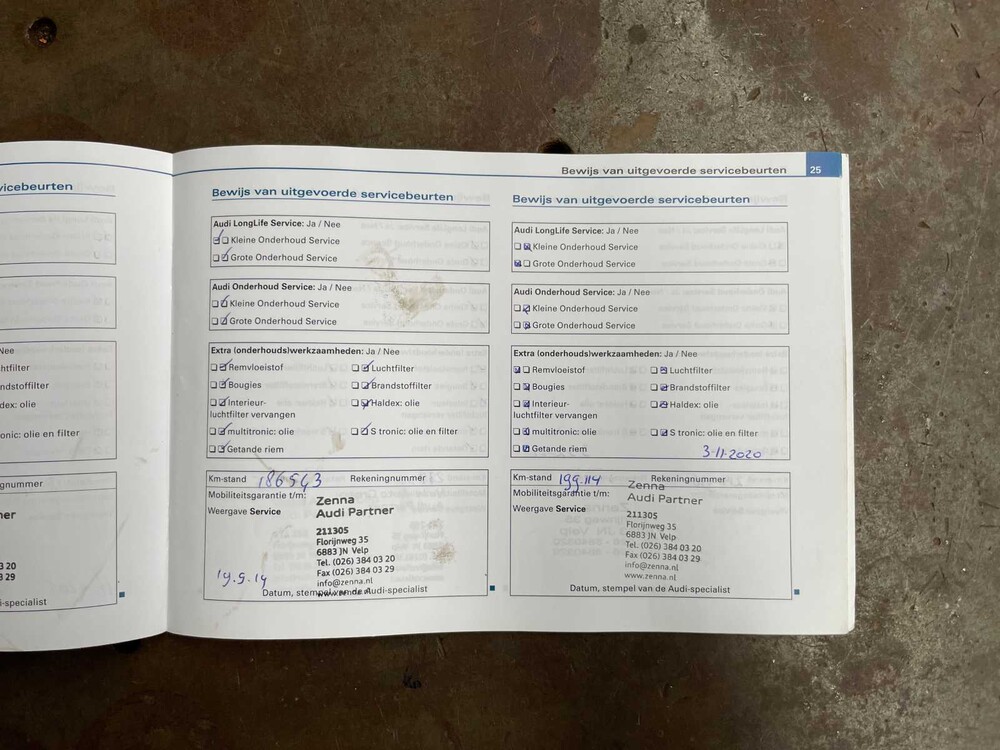 vicebeurten
Nee
htfilter
ndstoffilter
dex: olie
onic: olie en filter
gnummer
ner
3 20
3 29
i-specialist
Bewijs van uitgevoerde servicebeurten
Audi LongLife Service: Ja / Nee
Kleine Onderhoud Service
Grote Onderhoud Service
Audi Onderhoud Service: Ja / Nee
Kleine Onderhoud Service
Grote Onderhoud Service
Extra (onderhouds)werkzaamheden: Ja / Nee
Remvloeistof Luchtfilter
Bougies Brandstoffilter
Interieur- Haldex: olie
luchtfilter vervangen
multitronic: olie S tronic: olie en filter
Getande riem
Km-stand Rekeningnummer
Mobiliteitsgarantie t/m:
Weergave Service
Zenna
Audi Partner
211305
Florijnweg 35
6883 JN Velp
Tel. (026) 384 03 20
Fax (026) 384 03 29
info@zenna.nl
www.zenna.nl
Datum, stempel van de Audi-specialist
Bewijs van uitgevoerde servicebeurten 25
Bewijs van uitgevoerde servicebeurten
Audi LongLife Service: Ja / Nee
Kleine Onderhoud Service
Grote Onderhoud Service
Audi Onderhoud Service: Ja / Nee
Kleine Onderhoud Service
Grote Onderhoud Service
Extra (onderhouds)werkzaamheden: Ja / Nee
Remvloeistof Luchtfilter
Bougies Brandstoffilter
Interieur- Haldex: olie
luchtfilter vervangen
multitronic: olie S tronic: olie en filter
Getande riem
3-11-2020
Km-stand 199.114 Rekeningnummer
Mobiliteitsgarantie t/m:
Weergave Service
Zenna
Audi Partner
211305
Florijnweg 35
6883 JN Velp
Tel. (026) 384 03 20
Fax (026) 384 03 29
info@zenna.nl
www.zenna.nl
Datum, stempel van de Audi-specialist